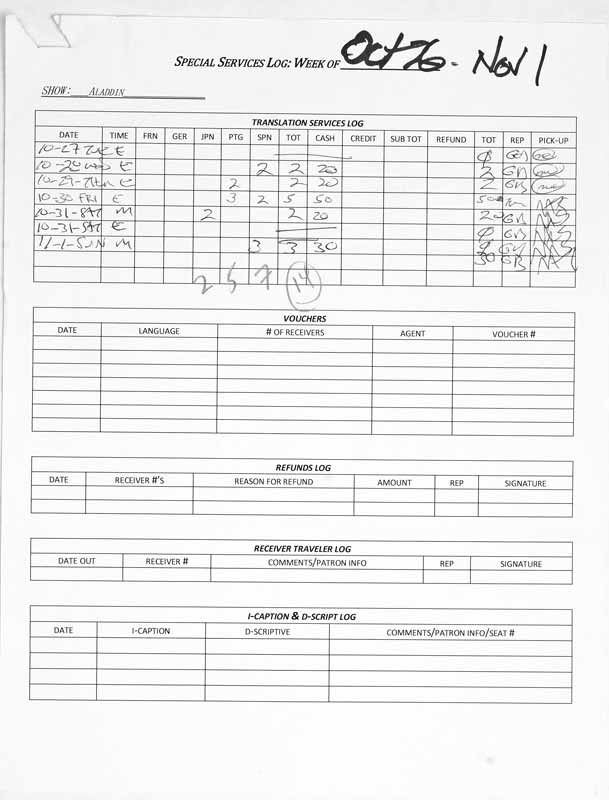 SPECIAL SERVICES LOG: WEEK OF Oct 26 - Nov 1
SHOW: ALADDIN
TRANSLATION SERVICES LOG
DATE TIME FRN GER JPN PTG SPN TOT CASH CREDIT SUB TOT REFUND TOT REP PICK-UP
10-27 TUE E GB
10-28 WED E 2 2 20 2 GB
10-29-THUR E 2 2 20 2 GB
10-30 FRI E 3 2 5 50 50
10-31-SAT M 2 2 20 20 GB
10-31-SAT E GB
11-1-SUN M 3 3 30 GB
30 GB
2 5 7 14
VOUCHERS
DATE LANGUAGE # OF RECEIVERS AGENT VOUCHER #
REFUNDS LOG
DATE RECEIVER #'S REASON FOR REFUND AMOUNT REP SIGNATURE
RECEIVER TRAVELER LOG
DATE OUT RECEIVER # COMMENTS/PATRON INFO REP SIGNATURE
I-CAPTION & D-SCRIPT LOG
DATE I-CAPTION D-SCRIPTIVE COMMENTS/PATRON INFO/SEAT #